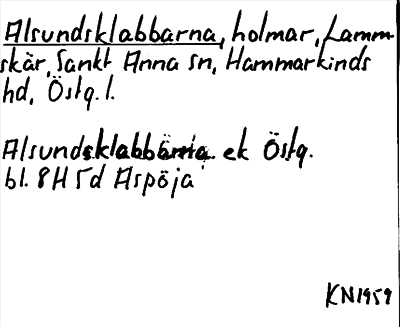 Alsundsklabbarna, holmar, Lamm-
skär, Sankt Anna sn, Hammarkinds
hd, Östg. l.
Alsundsklabbarna. ek Östg.
bl. 8H 5d Aspöja
KN1959